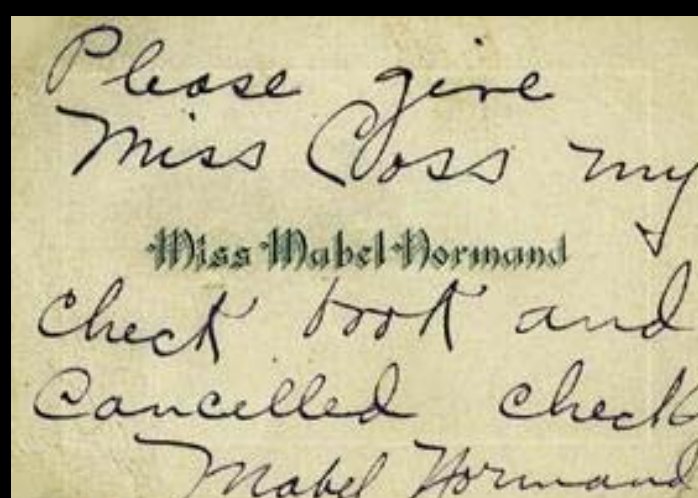 Please give
Miss Coss my
Miss Mabel Normand
check book and
Cancelled check
Mabel Normand